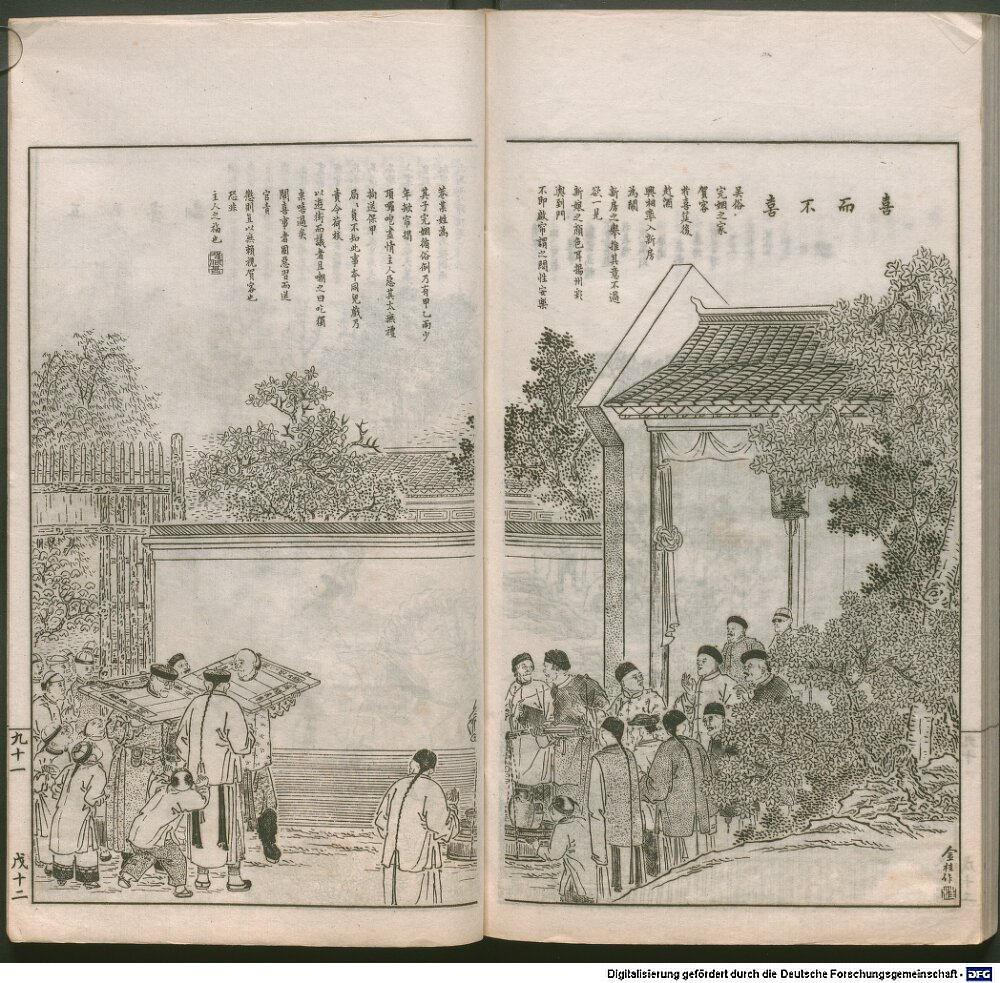 喜而不喜
吳俗
完姻之家
賀客
於喜筵後
酒
興相率入新房
為鬧
新房之舉推其意不過
欲一見
新娘之顏色耳揚州彩
輿到門
不即啟帘謂之悶性安樂
某業姓為
其子完姻循俗例乃有甲乙兩少
年掀帘攔
頂囉唣盡情主人惡其太無禮
拘送保甲
局員不知此事本同兒戲乃
責令荷校
以遊街而議者且嘲之曰吃獨
桌過矣
鬧喜事者固惡習而送
官責
懲則直以無賴視賀客也
恐非
主人之福也
金桂作
九十一
戊十二
Digitalisierung gefördert durch die Deutsche Forschungsgemeinschaft - DFG